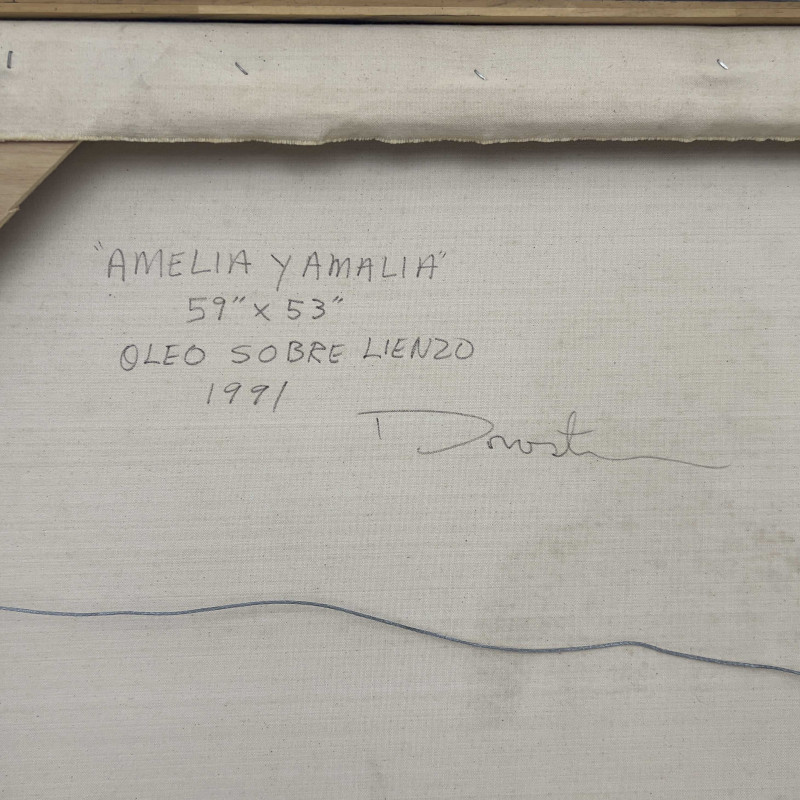 "AMELIA Y AMALIA"
59" x 53"
OLEO SOBRE LIENZO
1991